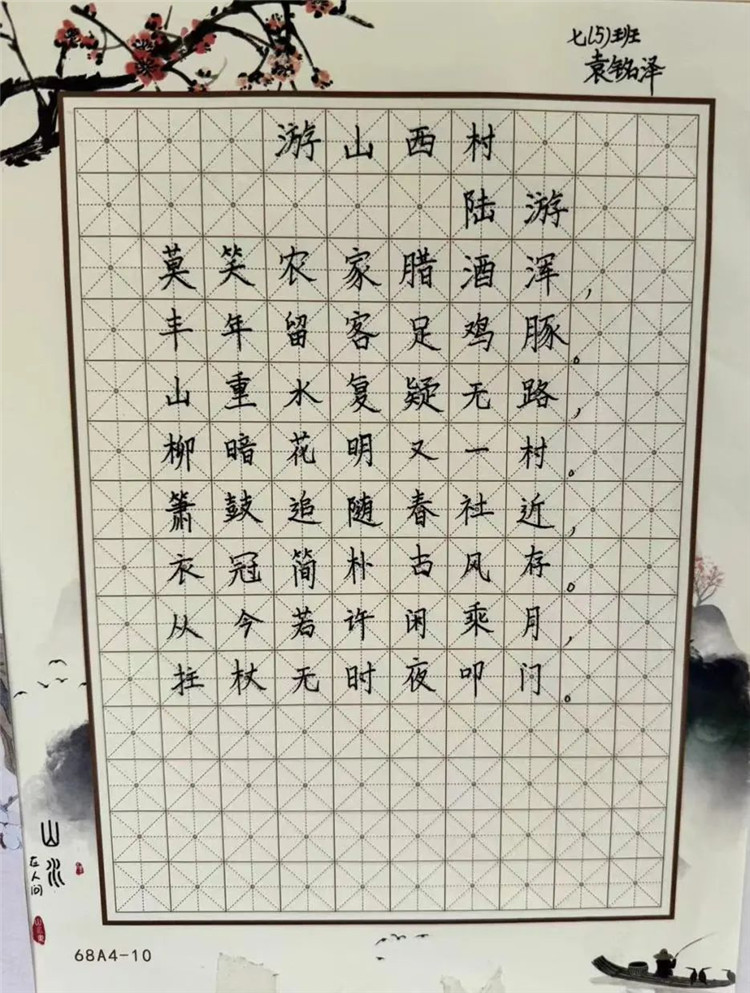 七(5)班
袁铭泽
游山西村
陆游
莫笑农家腊酒浑，
丰年留客足鸡豚。
山重水复疑无路，
柳暗花明又一村。
箫鼓追随春社近，
衣冠简朴古风存。
从今若许闲乘月，
拄杖无时夜叩门。
山水
在人间
68A4-10